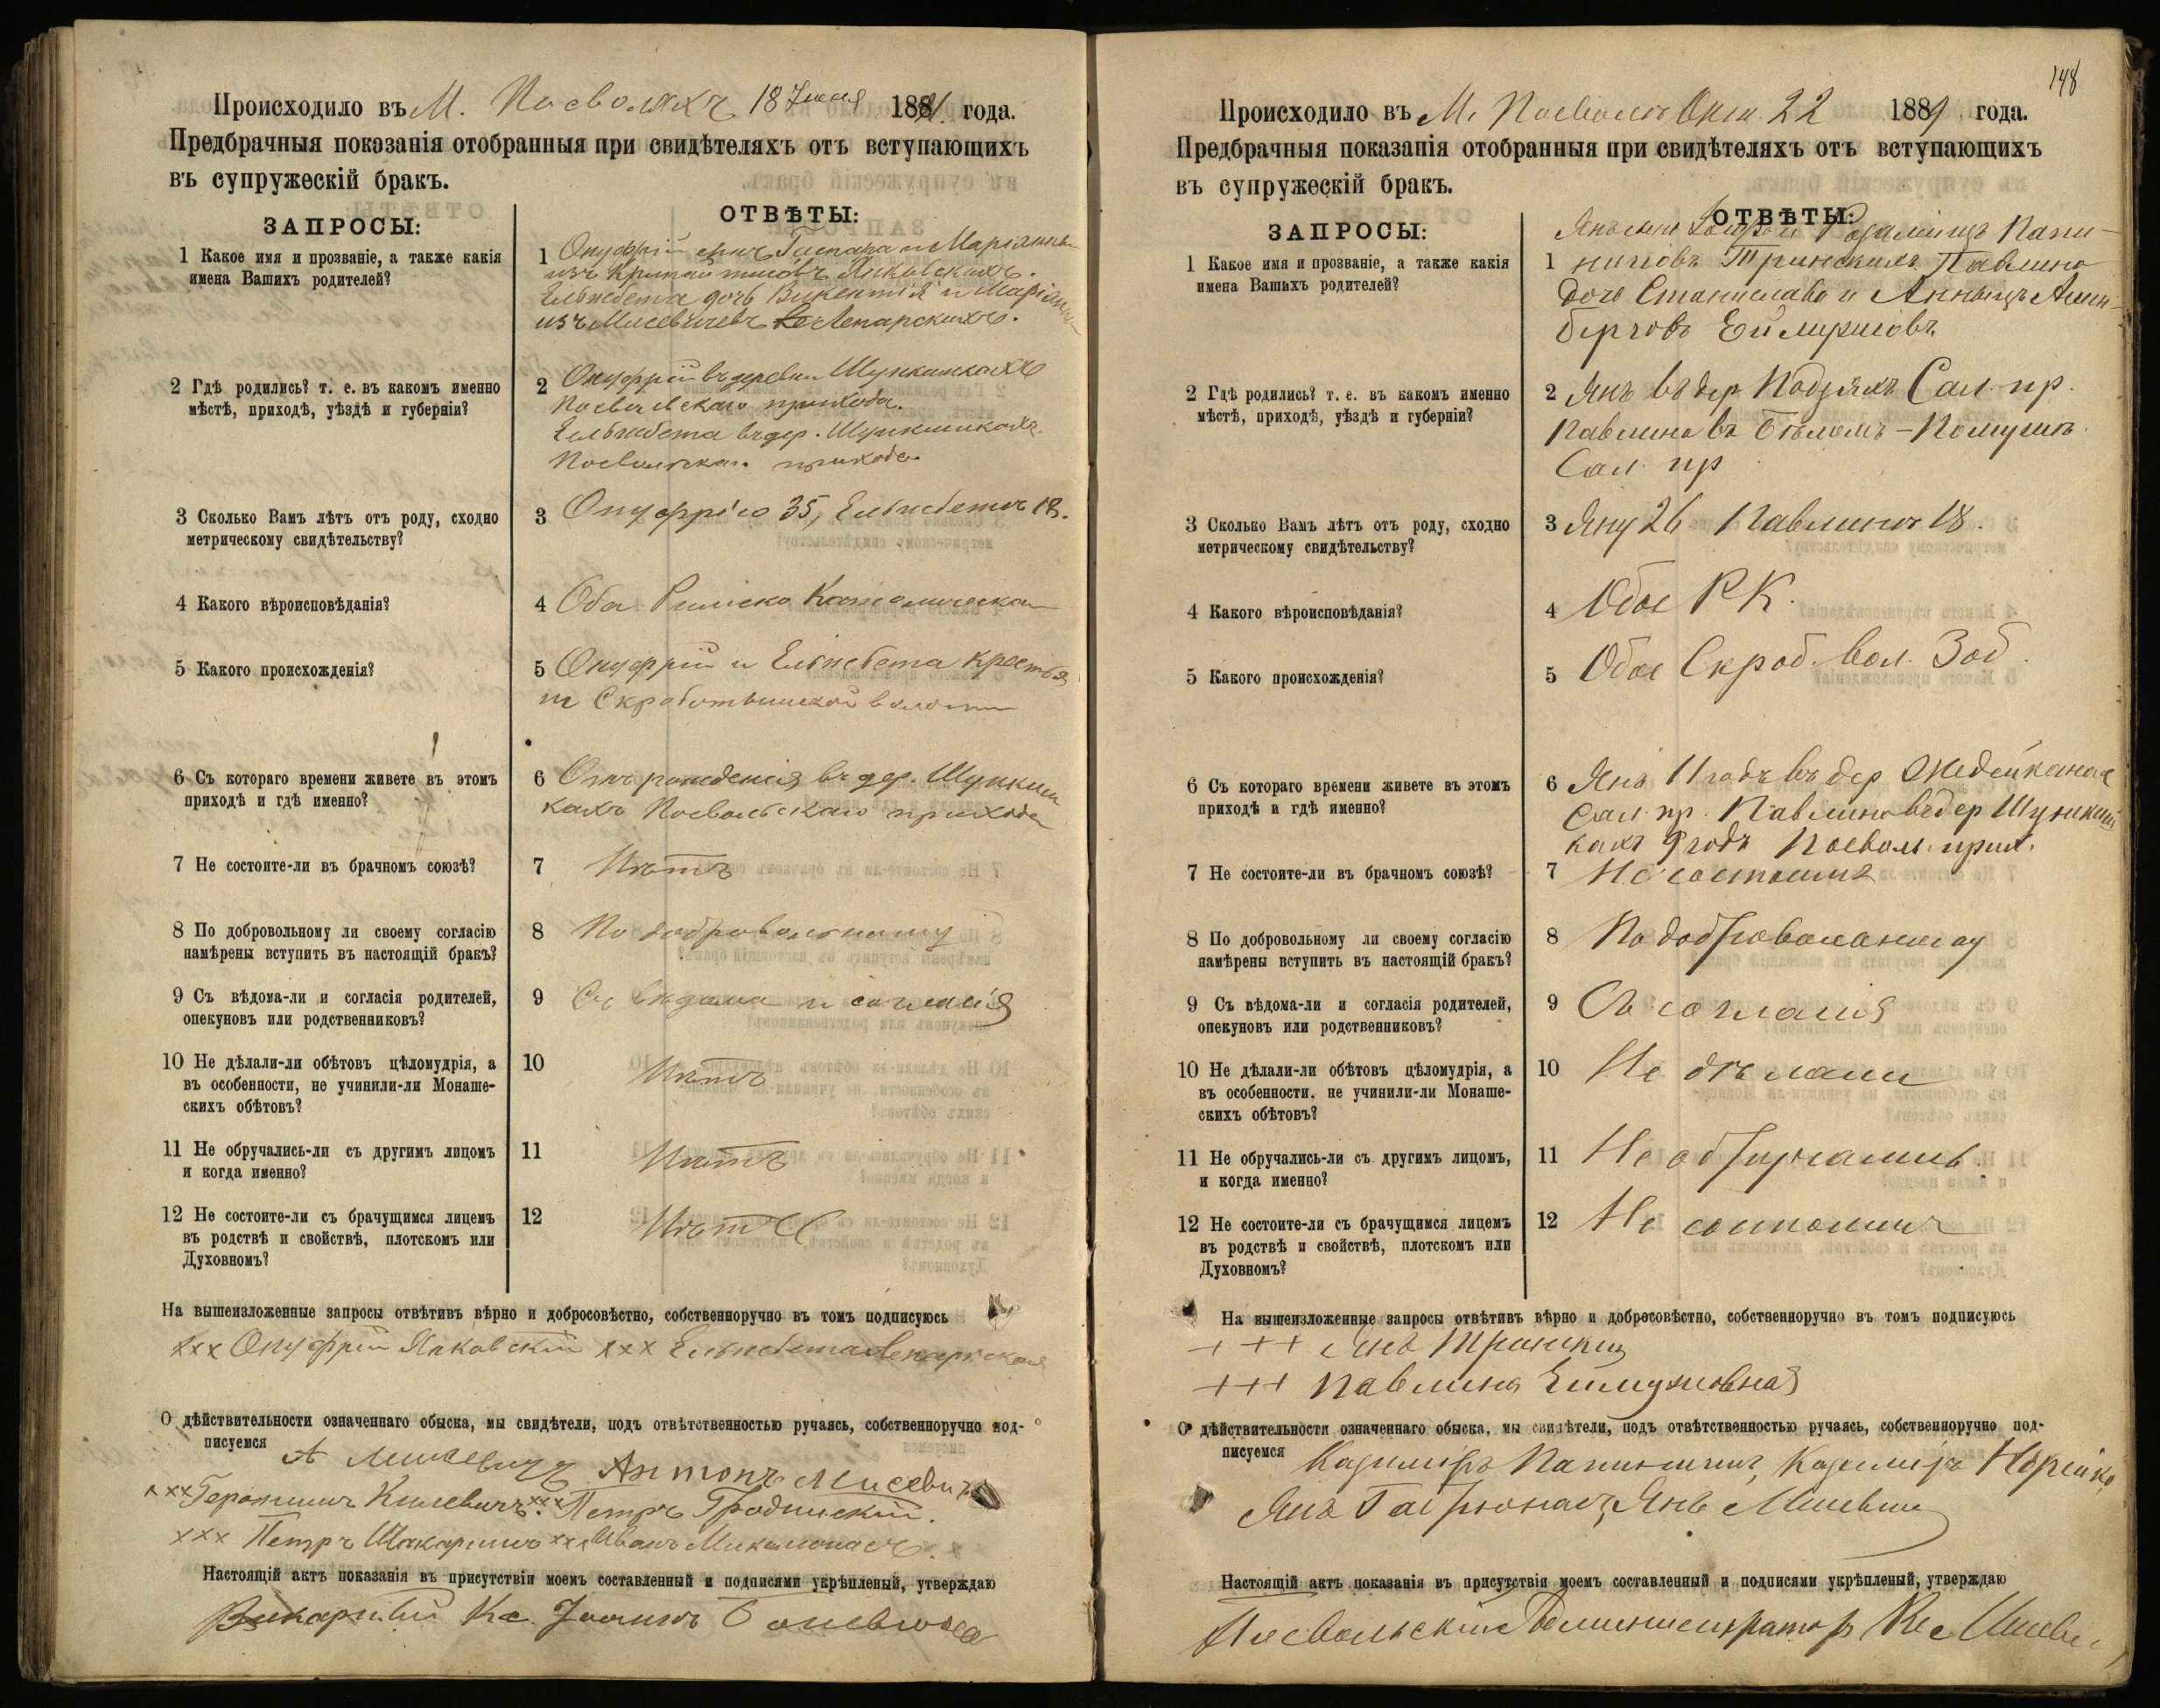 Происходило въ М. Посволяхъ 18 Іюня 1881 года.
Предбрачныя показанія отобранныя при свидѣтеляхъ отъ вступающихъ
въ супружескій бракъ.
ЗАПРОСЫ:
ОТВѢТЫ:
1 Какое имя и прозваніе, а также какія
имена Вашихъ родителей?
1 Онуфрій сынъ Гаспара и Маріанны
изъ Яковскихъ.
Ельжбета дочь Викентія и Маріанны
изъ Мисевичевъ Лепарскихъ.
2 Гдѣ родились? т. е. въ какомъ именно
мѣстѣ, приходѣ, уѣздѣ и губерніи?
2 Онуфрій въ деревни Шункишкахъ
Посвольскаго прихода.
Ельжбета въ дер. Шункишкахъ
Посвольскаго прихода
3 Сколько Вамъ лѣтъ отъ роду, сходно
метрическому свидѣтельству?
3 Онуфрію 35, Ельжбетѣ 18.
4 Какого вѣроисповѣданія?
4 Оба Римско Католическаго
5 Какого происхожденія?
5 Онуфрій и Ельжбета крестья
не Скработышской волости
6 Съ котораго времени живете въ этомъ
приходѣ и гдѣ именно?
6 Отъ рожденія въ дер. Шункиш
кахъ Посвольскаго прихода
7 Не состоите-ли въ брачномъ союзѣ?
7 Нѣтъ
8 По добровольному ли своему согласію
намѣрены вступить въ настоящій бракъ?
8 По добровольному
9 Съ вѣдома-ли и согласія родителей,
опекуновъ или родственниковъ?
9 Съ вѣдома и согласія
10 Не дѣлали-ли обѣтовъ цѣломудрія, а
въ особенности, не учинили-ли Монаше-
скихъ обѣтовъ?
10 Нѣтъ
11 Не обручались-ли съ другимъ лицомъ
и когда именно?
11 Нѣтъ
12 Не состоите-ли съ брачущимся лицемъ
въ родствѣ и свойствѣ, плотскомъ или
Духовномъ?
12 Нѣтъ
На вышеизложенные запросы отвѣтивъ вѣрно и добросовѣстно, собственноручно въ томъ подписуюсь
xxx Онуфрій Яковскій xxx Ельжбета Лепарская
О дѣйствительности означеннаго обыска, мы свидѣтели, подъ отвѣтственностью ручаясь, собственноручно под-
писуемся
А Мисевичъ Антонъ Мисевичъ
xxx Геронимъ xxx Петръ Гродинскій.
xxx Петръ xxx Иванъ
Настоящій актъ показанія въ присутствіи моемъ составленный и подписями укрѣпленый, утверждаю
Викарный Кс.
148
Происходило въ М. Посволь Окт. 22 1889 года.
Предбрачныя показанія отобранныя при свидѣтеляхъ отъ вступающихъ
въ супружескій бракъ.
ЗАПРОСЫ:
ОТВѢТЫ:
1 Какое имя и прозваніе, а также какія
имена Вашихъ родителей?
Янъ сынъ и Розаліи изъ
1 Павлина
дочь Станислава и Анны изъ
2 Гдѣ родились? т. е. въ какомъ именно
мѣстѣ, приходѣ, уѣздѣ и губерніи?
2 Янъ въ дер. Сал. пр.
Павлина въ Сал. пр
3 Сколько Вамъ лѣтъ отъ роду, сходно
метрическому свидѣтельству?
3 Яну 26 Павлинѣ 18.
4 Какого вѣроисповѣданія?
4 Обое Р К.
5 Какого происхожденія?
5 Обое Скроб. вол.
6 Съ котораго времени живете въ этомъ
приходѣ и гдѣ именно?
6 Янъ 11 годъ въ дер
Сал. пр. Павлина въ дер Шункиш
кахъ 9 годъ Посвол. прих.
7 Не состоите-ли въ брачномъ союзѣ?
7 Не состоимъ
8 По добровольному ли своему согласію
намѣрены вступить въ настоящій бракъ?
8 По добровольному
9 Съ вѣдома-ли и согласія родителей,
опекуновъ или родственниковъ?
9 Съ согласія
10 Не дѣлали-ли обѣтовъ цѣломудрія, а
въ особенности, не учинили-ли Монаше-
скихъ обѣтовъ?
10 Не дѣлали
11 Не обручались-ли съ другимъ лицомъ,
и когда именно?
11 Не обручались.
12 Не состоите-ли съ брачущимся лицемъ
въ родствѣ и свойствѣ, плотскомъ или
Духовномъ?
12 Не состоимъ
На вышеизложенные запросы отвѣтивъ вѣрно и добросовѣстно, собственноручно въ томъ подписуюсь
+++ Янъ
+++ Павлина
О дѣйствительности означеннаго обыска, мы свидѣтели, подъ отвѣтственностью ручаясь, собственноручно под-
писуемся
Казиміръ Казиміръ
Янъ Янъ
Настоящій актъ показанія въ присутствіи моемъ составленный и подписями укрѣпленый, утверждаю
Посвольскій Администраторъ Кс